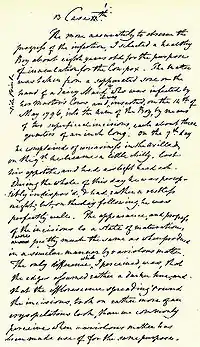 Case
The more accurately to observe the
progress of the infection, I selected a healthy
Boy about eight years old for the purpose
of inoculation for the Cow pox. The matter
was taken from a suppurated sore on the
hand of a dairy Maid, who was infected by
her Master's Cows and inserted on the 14th of
May 1796 into the arm of the Boy by means
of two superficial incisions, each about three
quarters of an inch long. On the 7th day
he complained of uneasiness in the axilla,
on the 9th he became a little chilly, lost
his appetite and had a slight head-ach.
During the whole of this day he was
indisposed & had rather a restless
night, but on the day following he was
perfectly well. The appearance, and progress
of the incisions to a state of maturation,
were pretty much the same as when produced
in a similar manner by variolous matter.
The only difference which I perceived was, that
the edges assumed rather a darker hue, and
that the efflorescence spreading round
the incisions, took on rather more of an
erysipelatous look, than we commonly
perceive when variolous matter has
been made use of for the same purpose.